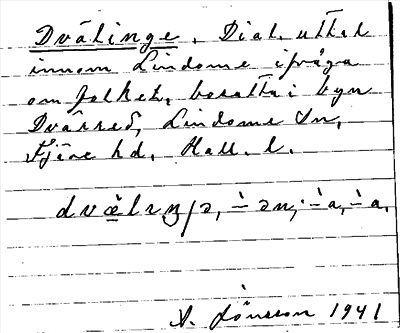 Dvälinge. Dial. uttal
innom Lindome ifråga
om folket, bosatta i byn
Dvärred, Lindome sn,
Fjäre hd, Hall. l.
A. Jönsson 1941